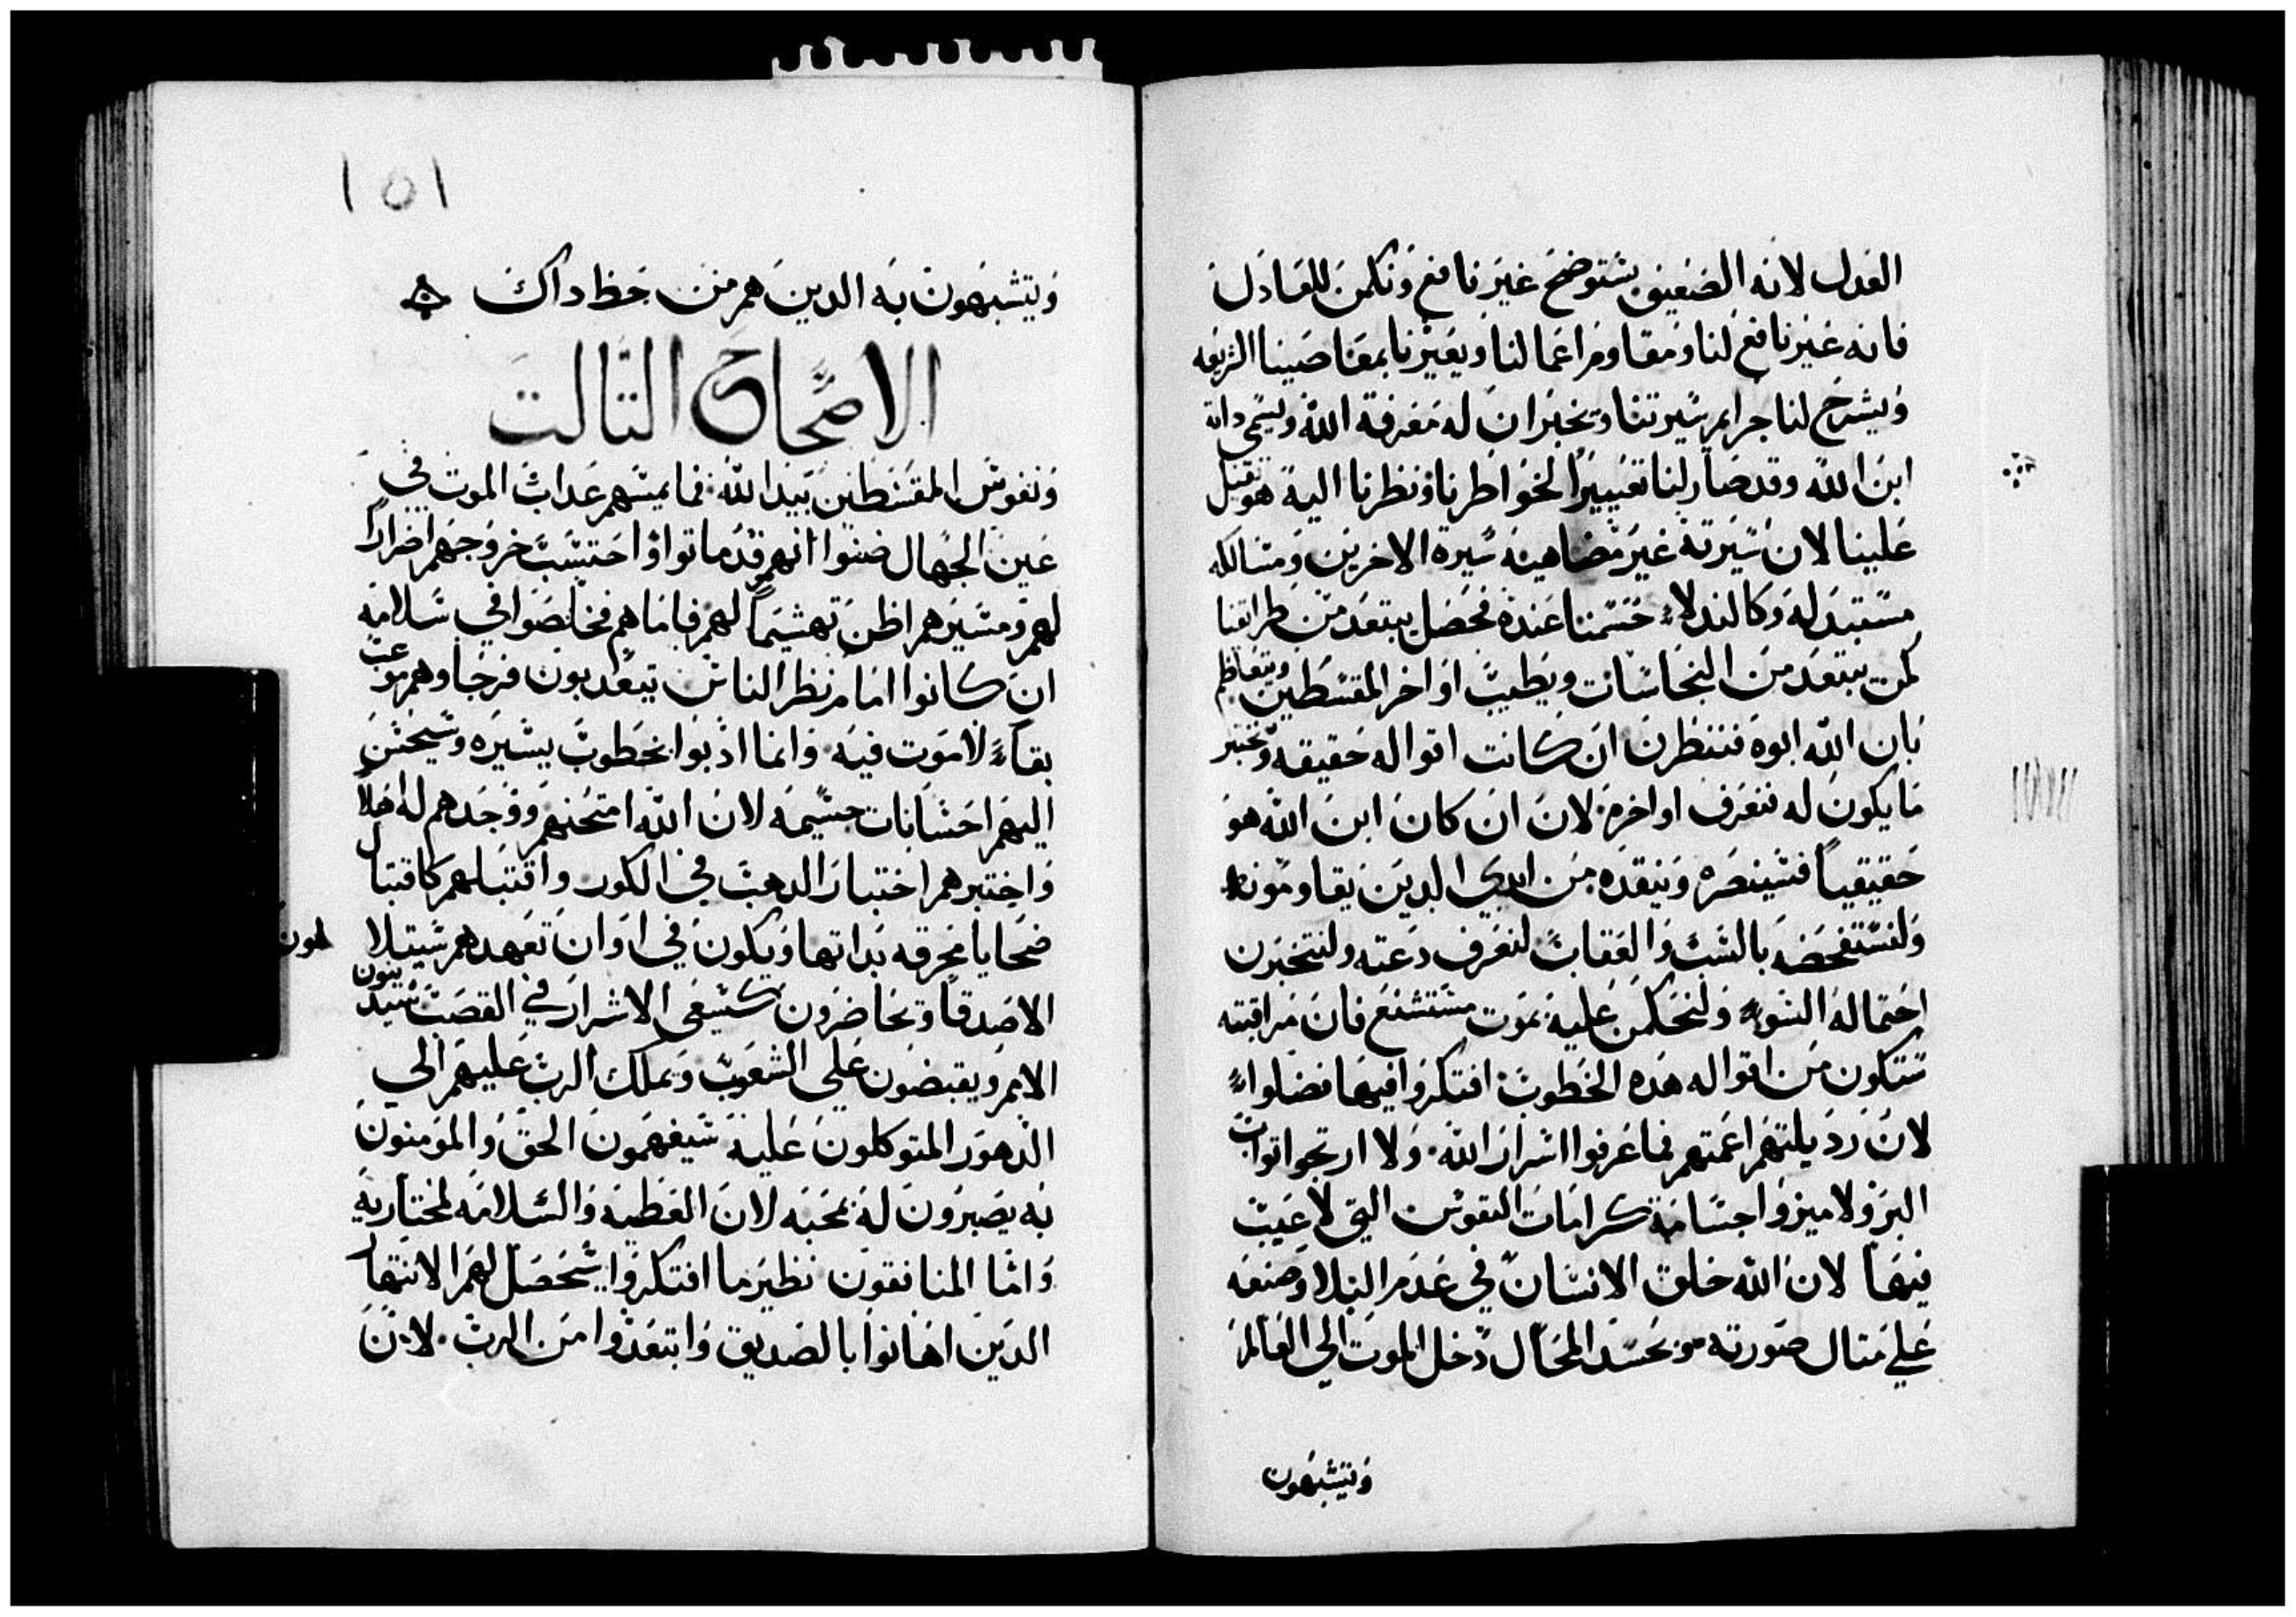 العدل لانه الضعيف يستوضح غير نافع ونكمن للعادل
فانه غير نافع لنا ومقاوم اعمالنا ويعيرنا بمعاصينا الشريعه
ويشرح لنا جرايم سيرتنا ويخبر ان له معرفة الله ويسمي داته
ابن الله وقد صار لنا تعييراً لخواطرنا ونظرنا اليه هو تقيل
علينا لان سيرته غير مضاهيه سيرة الاخرين ومسالكه
مستبدله وكالندلاء حسمنا عنده فحصل يبتعد من طرايقنا
كمن يبتعد من النجاسات ويطيب اواخر المقسطين ويتعاظم
بان الله ابوه فننظرن ان كانت اقواله حقيقه ونختبر
ما يكون له فنعرف اواخره لان ان كان ابن الله هو
حقيقياً فسينصره وينقده من ايدي الدين يقاومونه
ولنستفحصه بالسب والعقاب لنعرف دعته ولنتخبرن
احتماله السوء ولنحكمن عليه بموت مستشنع فان مراقبته
ستكون من اقواله هده الخطوب افتكروا فيها فضلواء
لان رديلتهم اعمتهم فما عرفوا اسرار الله ولا ارتجوا تواب
البر ولا ميزوا جسامة كرامات النفوس التي لا عيب
فيها لان الله خلق الانسان في عدم البلا وصنعه
علي متال صورته وبحسد المحال دخل الموت الي العالم
ويتشبهون
١٥١
ويتشبهون به الدين هم من حظ داك
الاصحاح التالت
ونفوس المقسطين بيد الله فما يمسهم عداب الموت في
عين الجهال ضنوا انهم قد ماتوا واحتسب خروجهم اضراراً
لهم ومسيرهم اظن تهشيماً لهم فاما هم فخلصوا في سلامه
ان كانوا امام نظر الناس يتعدبون فرجاوهم موعب
بقاءً لا موت فيه وانما ادبوا بخطوب يسيره وسيحسن
اليهم احسانات جسيمه لان الله امتحنهم ووجدهم له اهلاً
واختبرهم اختبار الدهب في الكور واقتبلهم كاقتبال
ضحايا محرقه بداتها ويكون في اوان تعهدهم سيتلالمون
الاصدقا وتحاضرون كسيعي الاشرار في القصب سيدينون
الامم ويقبضون علي الشعوب ويملك الرب عليهم الي
الدهور المتوكلون عليه سيفهمون الحق والمومنون
به يصبرون له بمحبه لان العطيه والسلامه لمختاريه
واما المنافقون نظير ما افتكروا سيحصل لهم الانتهار
الدين اهانوا بالصديق وابتعدوا من الرب لان